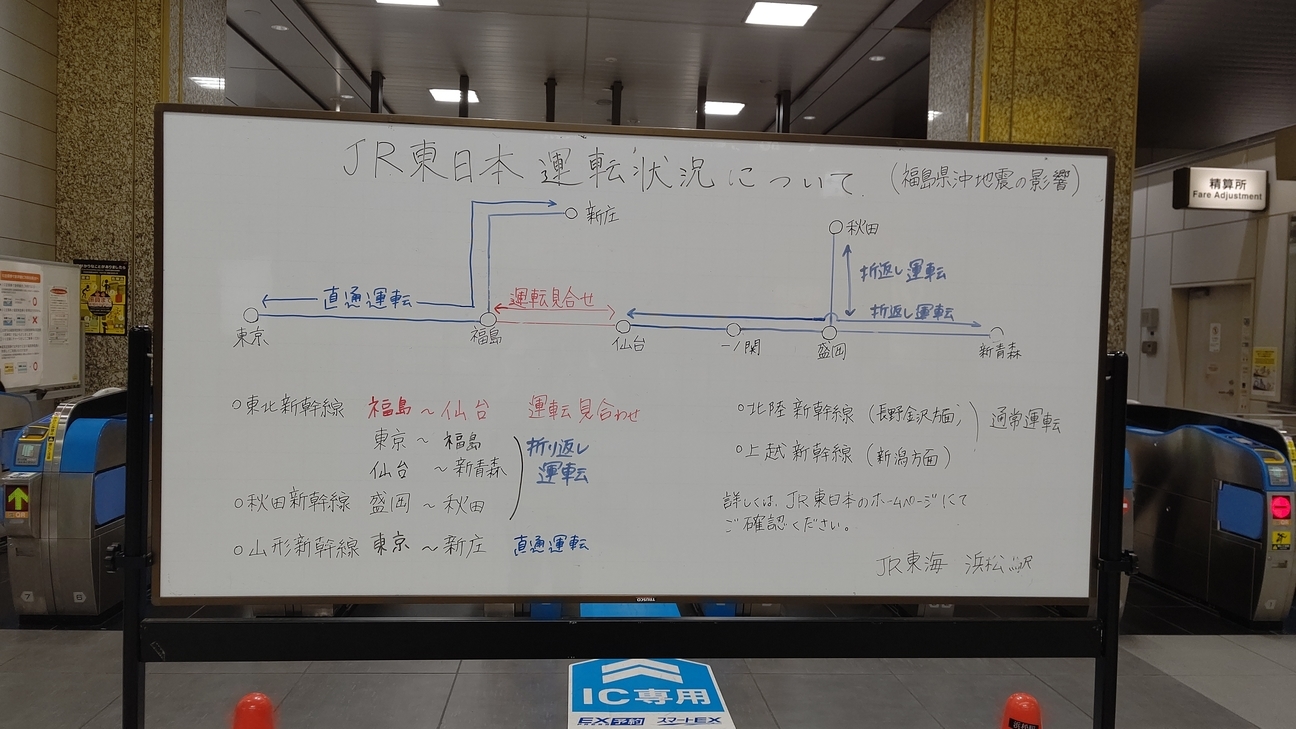 JR東日本 運転状況について (福島県沖地震の影響)
新庄
秋田
折返し運転
直通運転
運転見合せ
折返し運転
東京
福島
仙台
一ノ関
盛岡
新青森
○東北新幹線 福島～仙台 運転見合わせ
東京～福島
仙台～新青森
折り返し
運転
○秋田新幹線 盛岡～秋田
○山形新幹線 東京～新庄 直通運転
○北陸新幹線 (長野金沢方面)
○上越新幹線 (新潟方面)
通常運転
詳しくは、JR東日本のホームページにて
ご確認ください。
JR東海 浜松駅
TRUSCO
精算所
Fare Adjustment
IC専用
EX予約 スマートEX
7
8